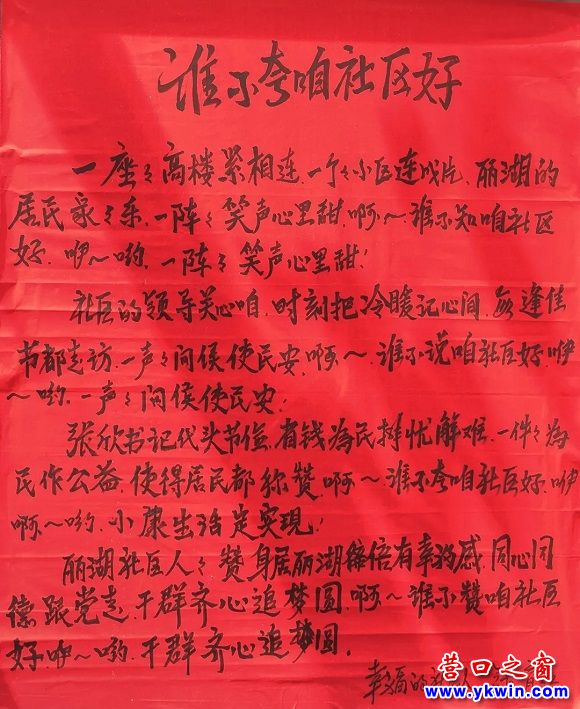 谁不夸咱社区好
一座々高楼紧相连、一个々小区连成片、丽湖的
居民家々乐、一阵々笑声心里甜、啊～谁不知咱社区
好、咿～哟、一阵々笑声心里甜！
社区的领导关心咱、时刻把冷暖记心间、每逢佳
节都走访、一声々问候使民安、啊～、谁不说咱社区好、咿
～哟、一声々问候使民安！
张欣书记代头节俭、省钱为民排忧解难、一件々为
民作公益、使得居民都称赞、啊～谁不夸咱社区好、咿
啊～哟、小康生活定实现！
丽湖社区人々赞、身居丽湖倍倍有幸福感、同心同
德跟党走、干群齐心追梦圆、啊～谁不赞咱社区
好咿～哟、干群齐心追梦圆。
幸福的
营口之窗
www.ykwin.com